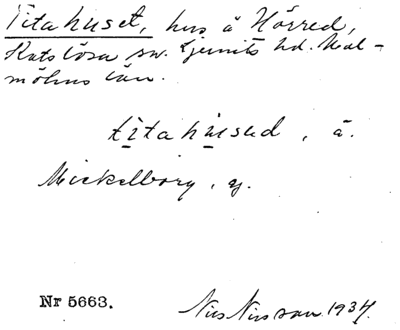 Titahuset, hus å Hörred,
Katslösa sn. Ljunits hd. Mal-
möhus län.
titahused, ä.
Mickelborg, g.
Nr 5663.
Nils Nilsson 1934.